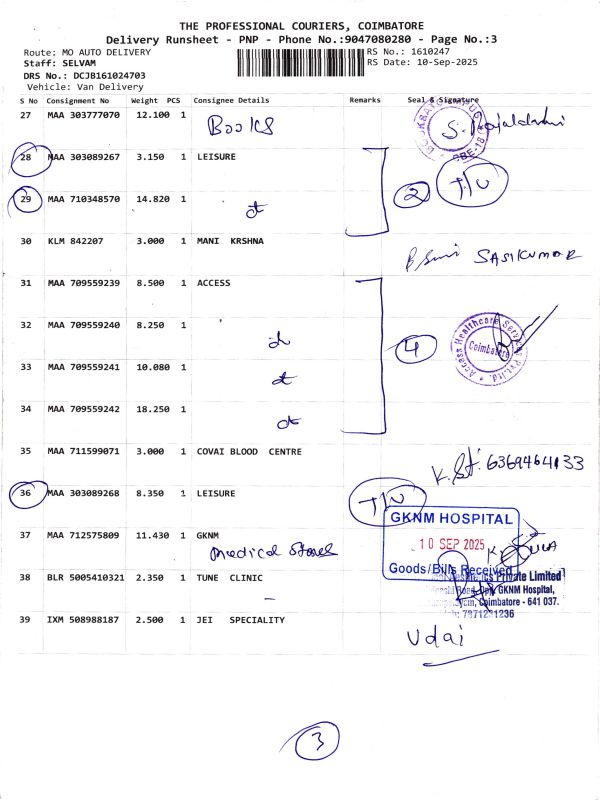 THE PROFESSIONAL COURIERS, COIMBATORE
Delivery Runsheet - PNP - Phone No.:9047080280 - Page No.:3
Route: MO AUTO DELIVERY RS No.: 1610247
Staff: SELVAM RS Date: 10-Sep-2025
DRS No.: DCJB161024703
Vehicle: Van Delivery
S No Consignment No Weight PCS Consignee Details Remarks Seal & Signature
27 MAA 303777070 12.100 1 Books
28 MAA 303089267 3.150 1 LEISURE
29 MAA 710348570 14.820 1 2 T/U
30 KLM 842207 3.000 1 MANI KRSHNA SASIKUMAR
31 MAA 709559239 8.500 1 ACCESS
32 MAA 709559240 8.250 1 4
Access Healthcare Services Pvt.Ltd. Coimbatore
33 MAA 709559241 10.080 1
34 MAA 709559242 18.250 1
35 MAA 711599071 3.000 1 COVAI BLOOD CENTRE
36 MAA 303089268 8.350 1 LEISURE T/U
37 MAA 712575809 11.430 1 GKNM
Medical Stores
GKNM HOSPITAL
10 SEP 2025
Goods/Bills Received
38 BLR 5005410321 2.350 1 TUNE CLINIC
Private Limited
GKNM Hospital,
Coimbatore - 641 037.
39 IXM 508988187 2.500 1 JEI SPECIALITY
Udai
3